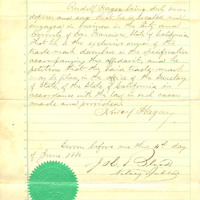 Rudolf Hagen being duly sworn
deposes and says that he is located and
engaged in business in the City and
County of San Francisco, State of California
that he is the exclusive owner of the
trade mark described in the specification
accompanying this affidavit and he
petitions that the said trade mark
may be filed in the office of the Secretary
of State of the State of California in
accordance with the law in such cases
made and provided.
Hagen
Sworn before me this day
of June
Notary Public